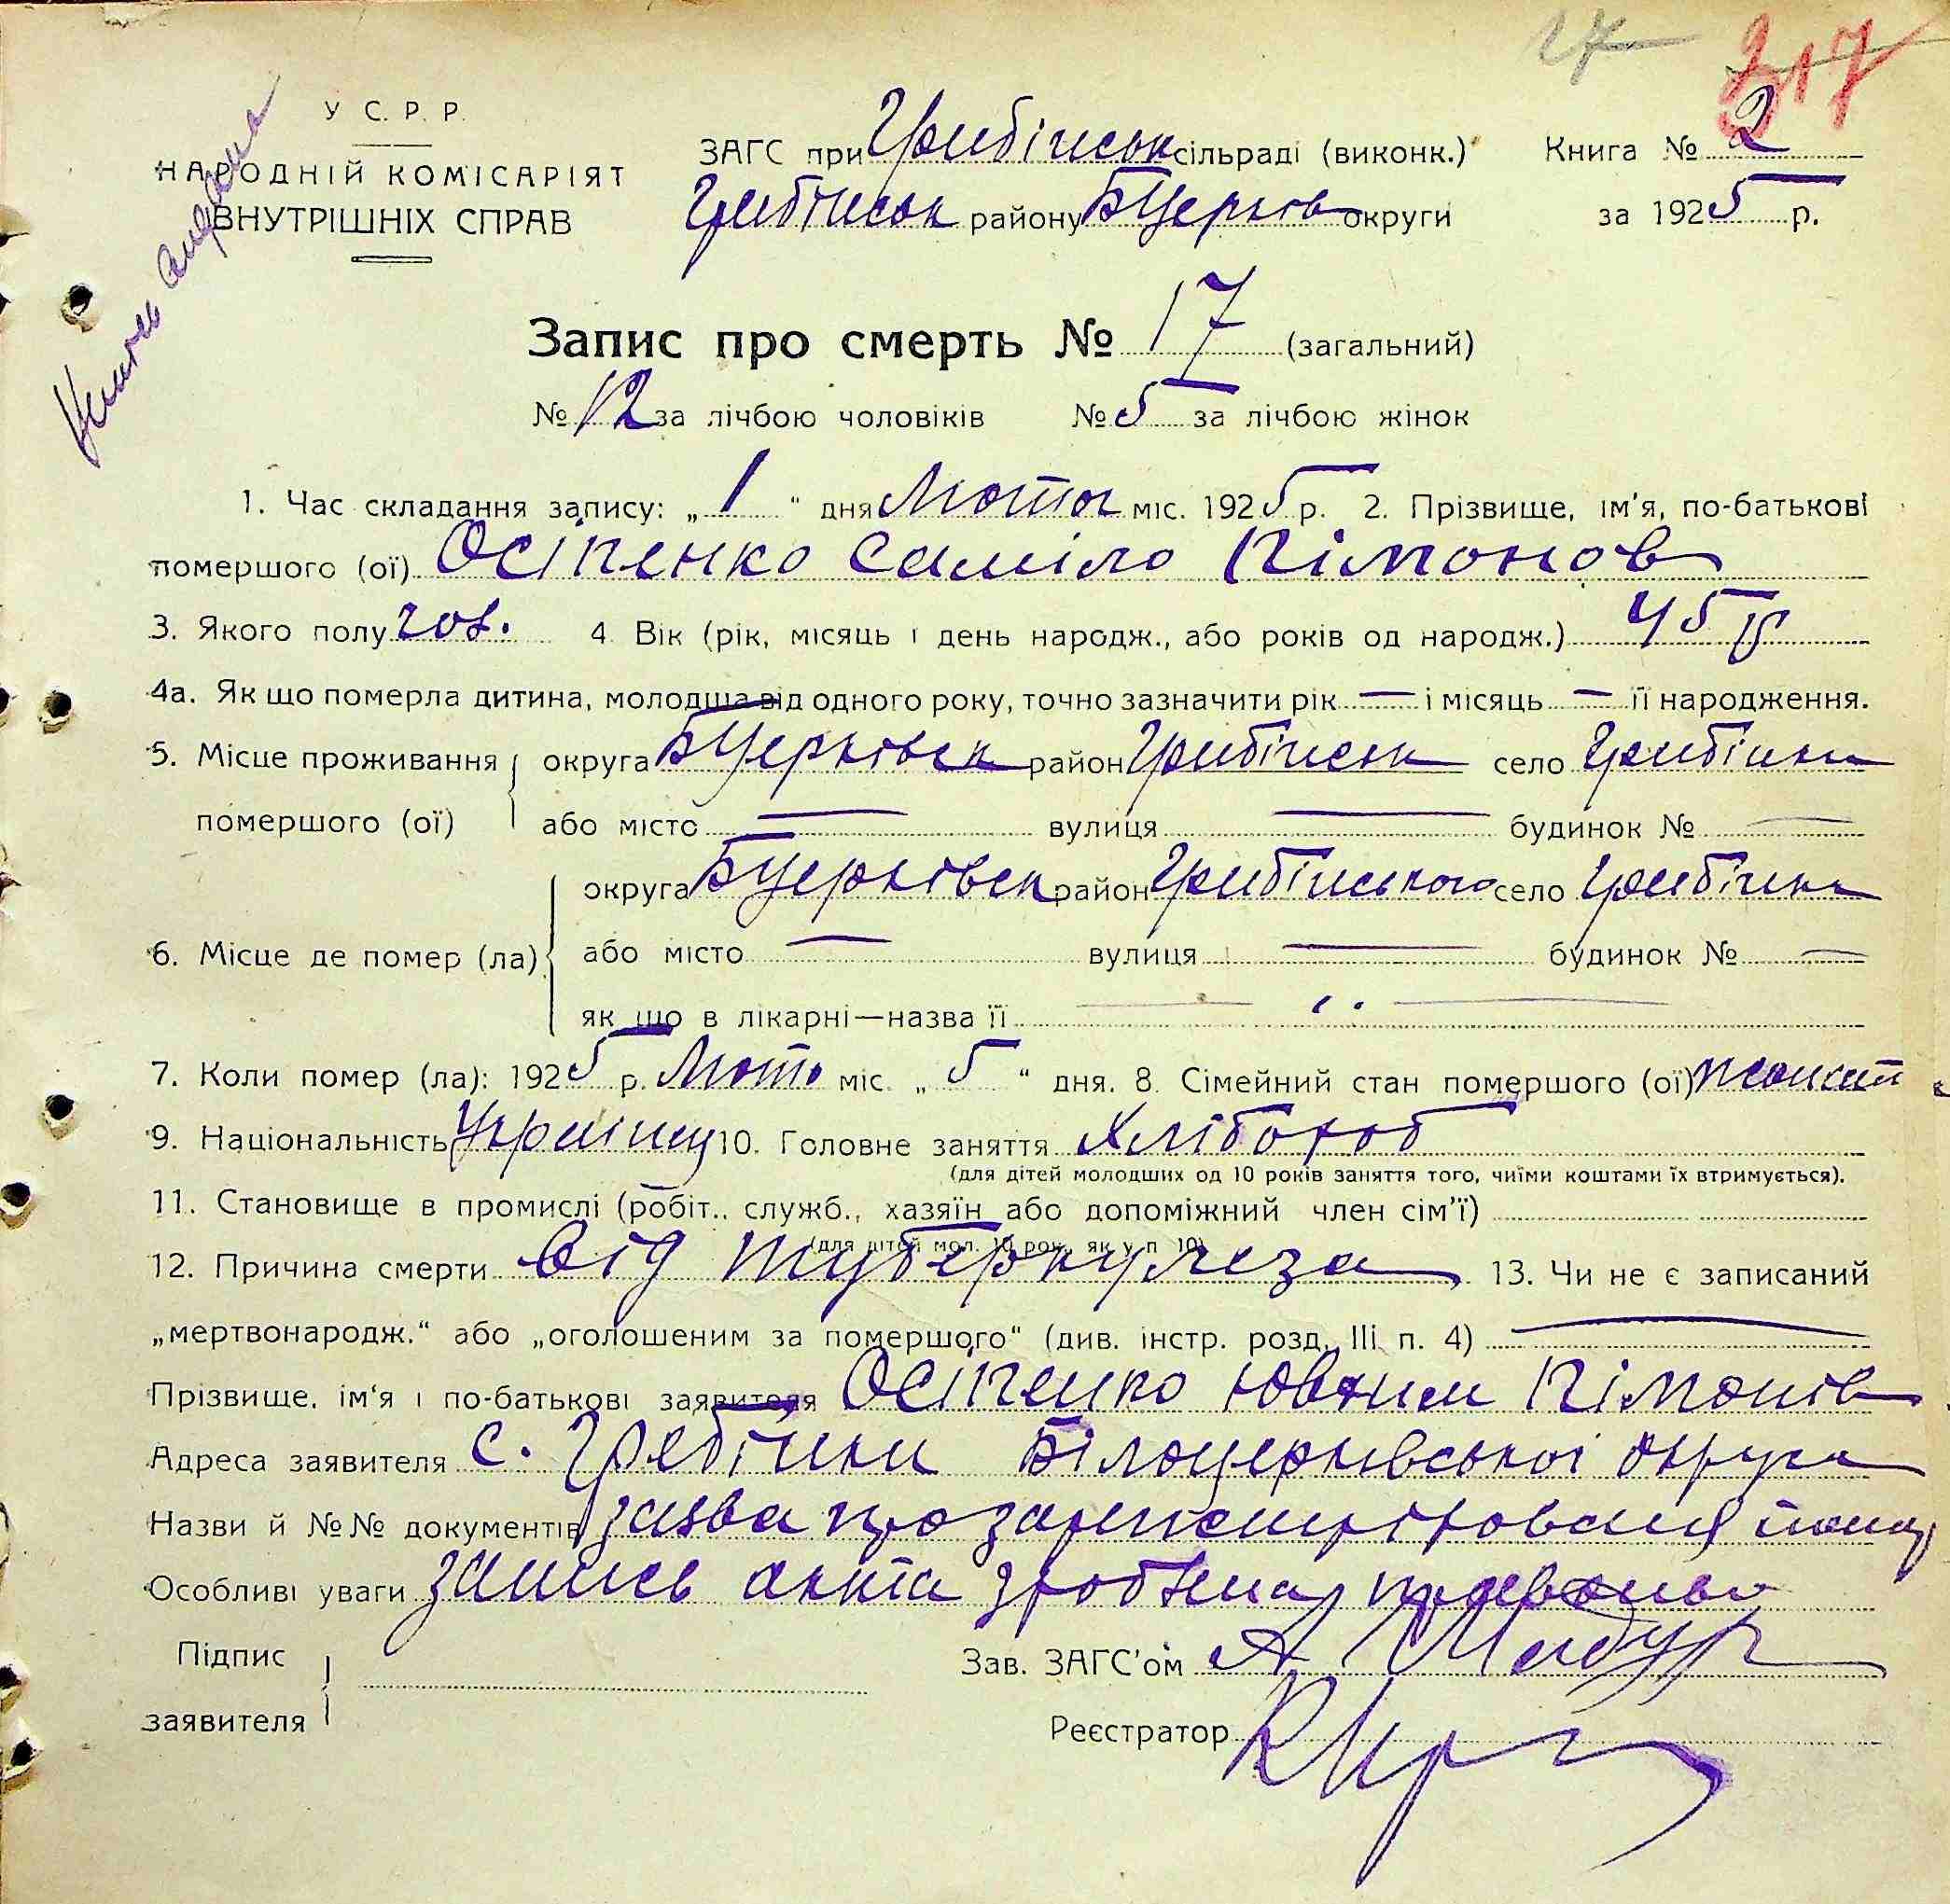 17
317
У С. Р. Р.
НАРОДНІЙ КОМІСАРІЯТ
ВНУТРІШНІХ СПРАВ
ЗАГС при Гребінськ сільраді (виконк.)
Гребінськ району БЦерків округи
Книга № 2
за 1925 р.
Запис про смерть № 17 (загальний)
№ 12 за лічбою чоловіків № 5 за лічбою жінок
1. Час складання запису: „1“ дня Люто міс. 1925 р. 2. Прізвище, ім'я, по-батькові
помершого (ої) Осіпенко Саміло Пімонов
3. Якого полу чов. 4. Вік (рік, місяць і день народж., або років од народж.) 45 р
4а. Як що померла дитина, молодша від одного року, точно зазначити рік — і місяць — її народження.
5. Місце проживання округа БЦерківськ район Гребінськ село Гребінки
помершого (ої) або місто — вулиця — будинок № —
округа БЦерківськ район Гребінського село Гребінка
6. Місце де помер (ла) або місто — вулиця — будинок № —
як що в лікарні—назва її
7. Коли помер (ла): 1925 р. Люто міс. „5“ дня. 8. Сімейний стан помершого (ої) жонат
9. Національність Українец 10. Головне заняття Хлібороб
(для дітей молодших од 10 років заняття того, чиїми коштами їх втримується).
11. Становище в промислі (робіт., служб., хазяїн або допоміжний член сім'ї)
(для дітей мол. 10 рок., як у п. 10)
12. Причина смерти від туберкулеза 13. Чи не є записаний
„мертвонародж.“ або „оголошеним за помершого“ (див. інстр. розд. III п. 4) —
Прізвище, ім‘я і по-батькові заявителя Осіпенко Пімонів
Адреса заявителя с. Гребінки Білоцерківської округи
Назви й №№ документів заява про
Особливі уваги запись акта зроблена правільно
Підпис
заявителя
Зав. ЗАГС'ом А
Реєстратор